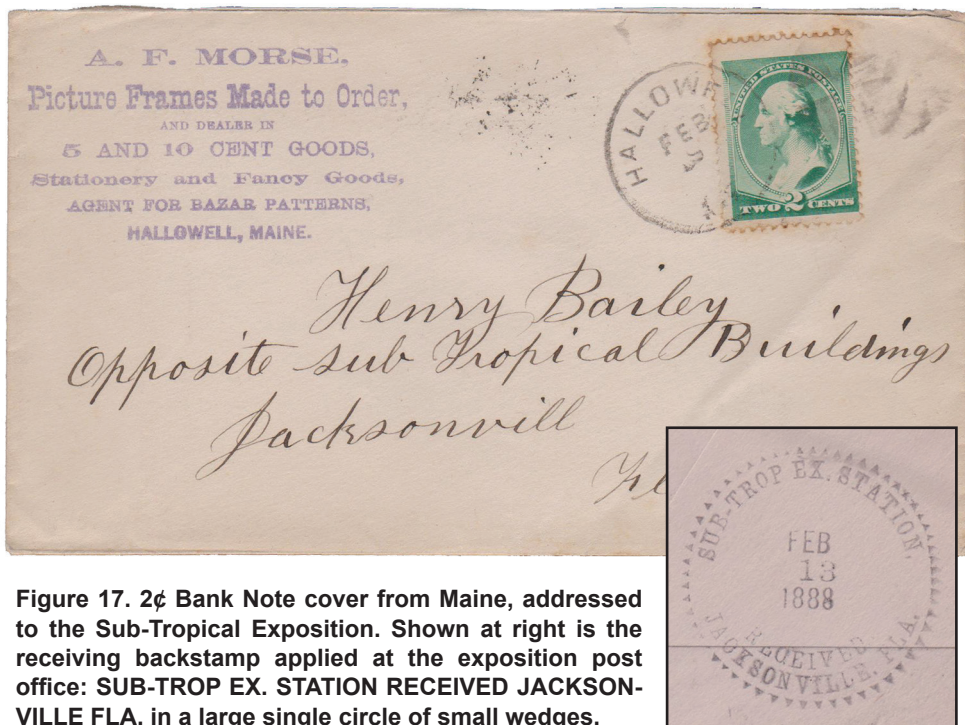 A. F. MORSE,
Picture Frames Made to Order,
AND DEALER IN
5 AND 10 CENT GOODS,
Stationery and Fancy Goods,
AGENT FOR BAZAR PATTERNS,
HALLOWELL, MAINE.
HALLOWE
FEB
UNITED STATES POSTAGE
TWO 2 CENTS
Henry Bailey
Opposite sub Tropical Buildings
Jacksonvill
SUB-TROP EX. STATION,
FEB
13
1888
RECEIVED
JACKSONVILLE, FLA.
Figure 17. 2¢ Bank Note cover from Maine, addressed
to the Sub-Tropical Exposition. Shown at right is the
receiving backstamp applied at the exposition post
office: SUB-TROP EX. STATION RECEIVED JACKSON-
VILLE FLA. in a large single circle of small wedges.